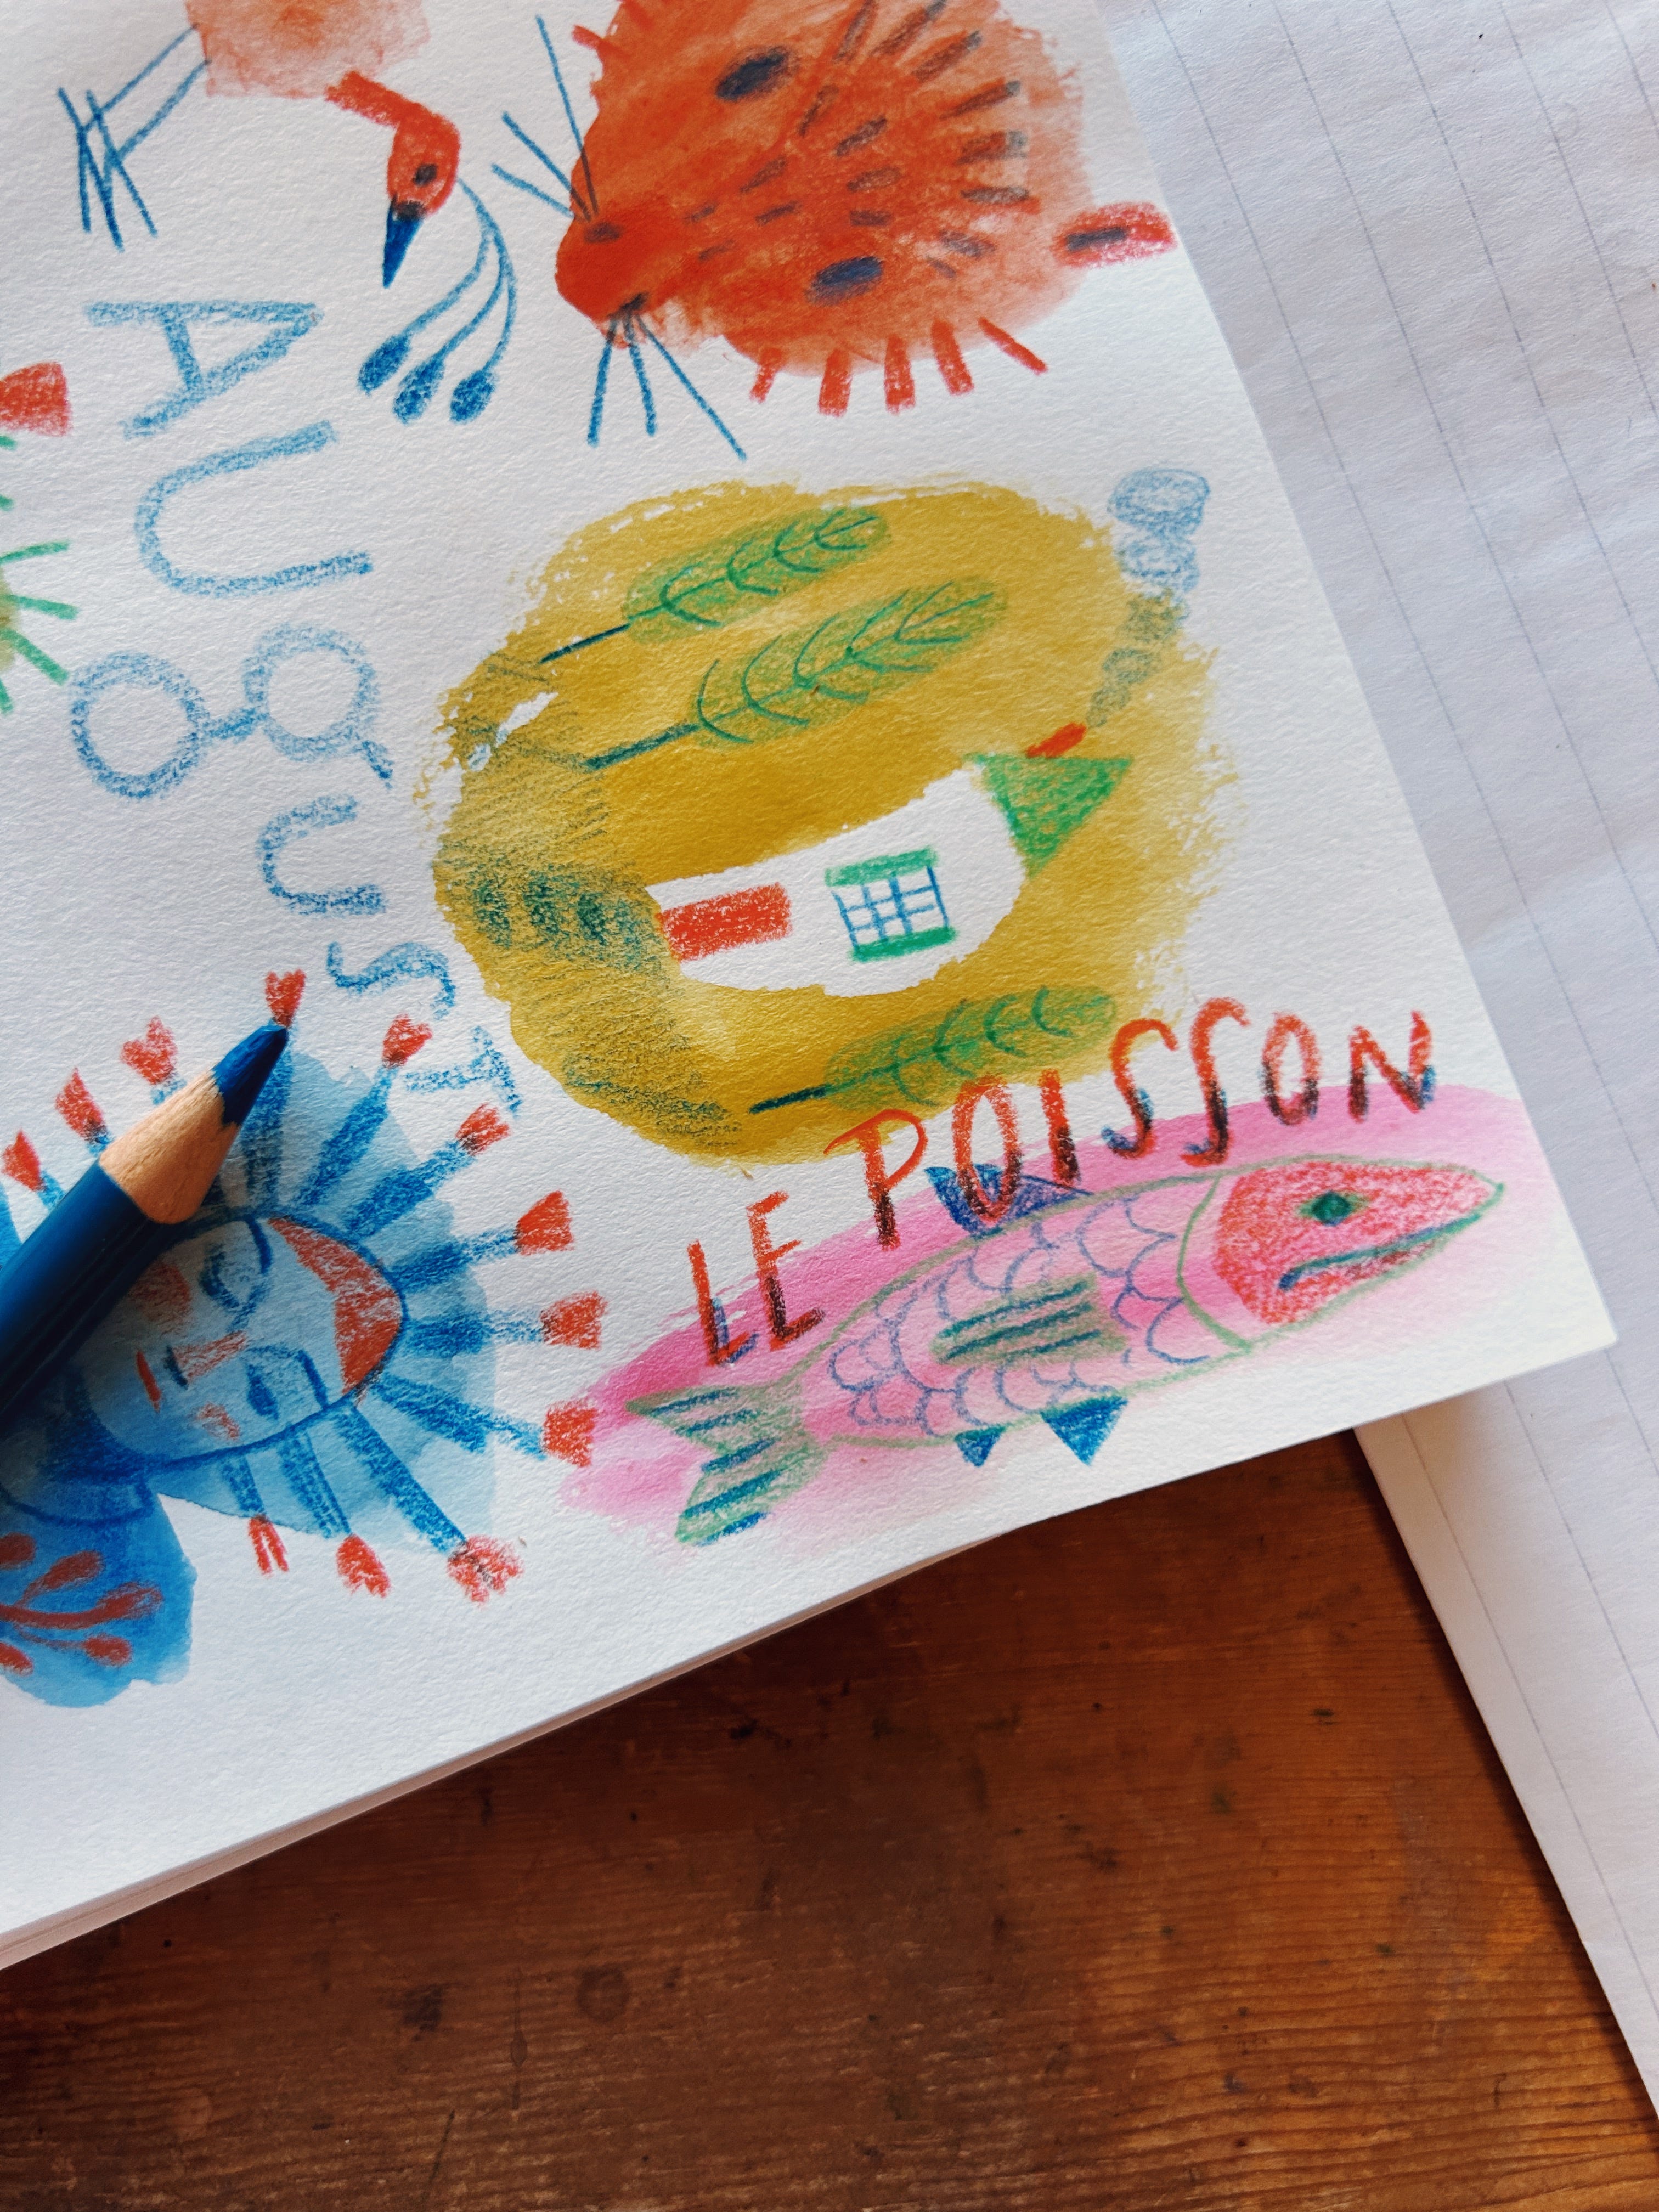 AUgusT
LE POISSON